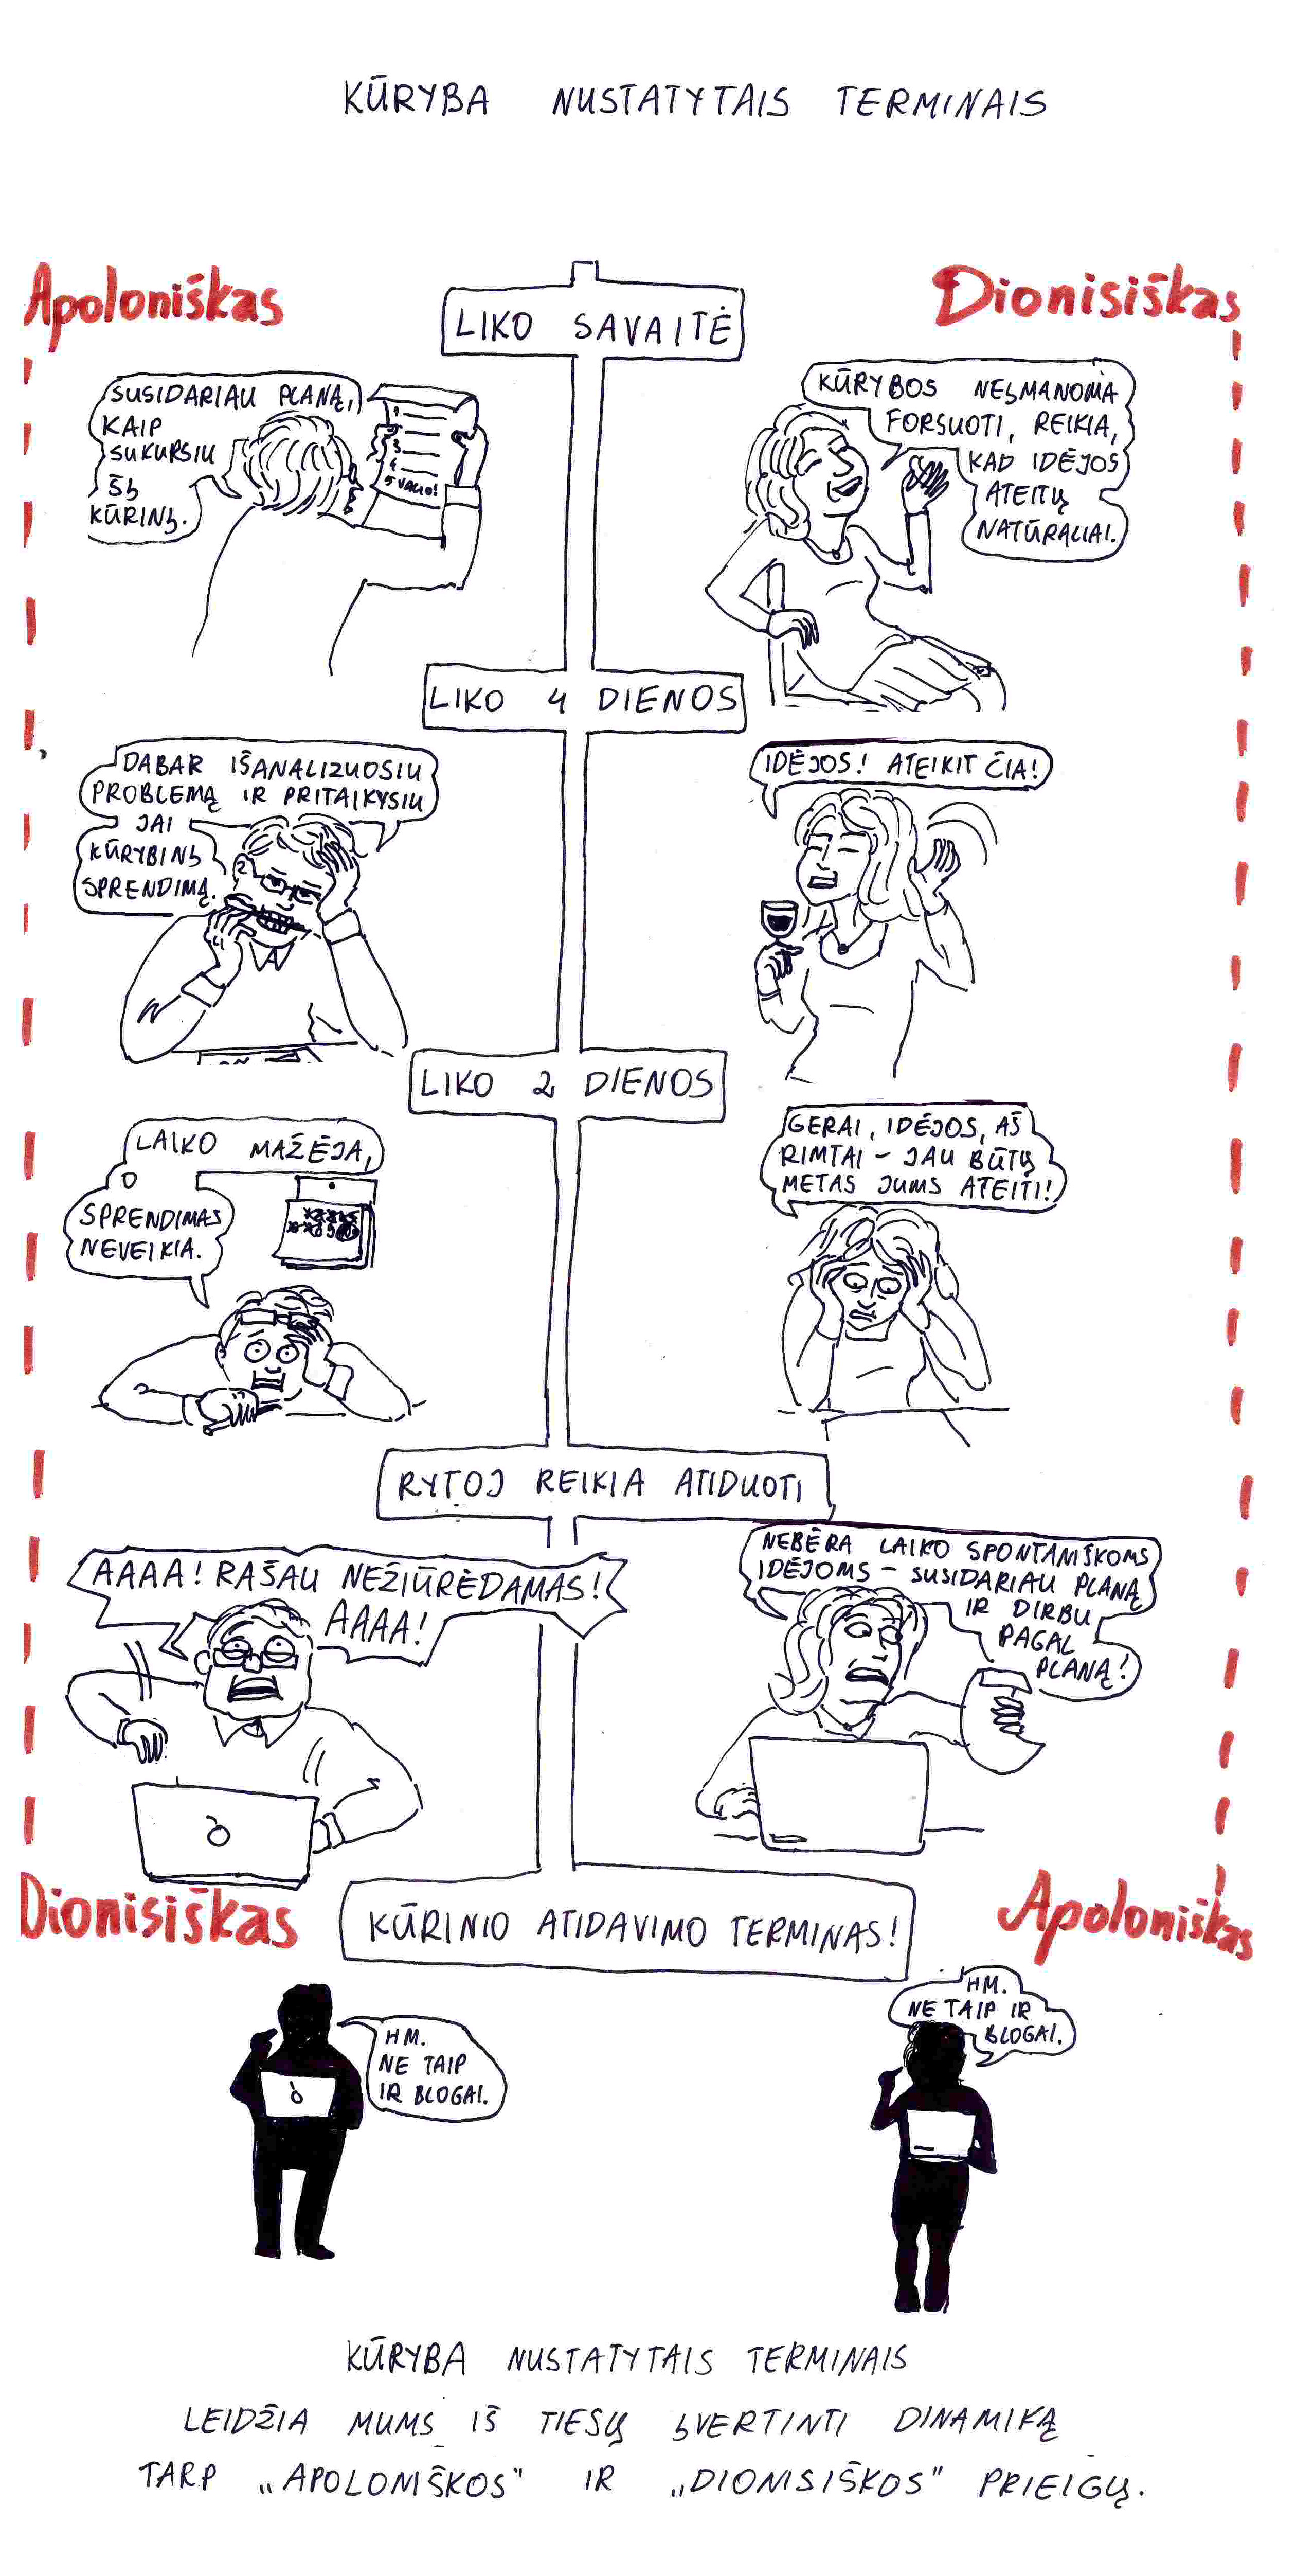 KŪRYBA NUSTATYTAIS TERMINAIS
Apoloniškas
Dionisiškas
LIKO SAVAITĖ
SUSIDARIAU PLANĄ,
KAIP
SUKURSIU
ŠĮ
KŪRINĮ.
1
2
3
4
5 VALIO!
KŪRYBOS NEĮMANOMA
FORSUOTI, REIKIA,
KAD IDĖJOS
ATEITŲ
NATŪRALIAI.
LIKO 4 DIENOS
DABAR IŠANALIZUOSIU
PROBLEMĄ IR PRITAIKYSIU
JAI
KŪRYBINĮ
SPRENDIMĄ.
IDĖJOS! ATEIKIT ČIA!
LIKO 2 DIENOS
LAIKO MAŽĖJA,
O
SPRENDIMAS
NEVEIKIA.
GERAI, IDĖJOS, AŠ
RIMTAI – JAU BŪTŲ
METAS JUMS ATEITI!
RYTOJ REIKIA ATIDUOTI
AAAA! RAŠAU NEŽIŪRĖDAMAS!
AAAA!
NEBĖRA LAIKO SPONTANIŠKOMS
IDĖJOMS – SUSIDARIAU PLANĄ
IR DIRBU
PAGAL
PLANĄ!
Dionisiškas
Apoloniškas
KŪRINIO ATIDAVIMO TERMINAS!
HM.
NE TAIP
IR BLOGAI.
HM.
NE TAIP IR
BLOGAI.
KŪRYBA NUSTATYTAIS TERMINAIS
LEIDŽIA MUMS IŠ TIESŲ ĮVERTINTI DINAMIKĄ
TARP „APOLONIŠKOS" IR „DIONISIŠKOS" PRIEIGŲ.